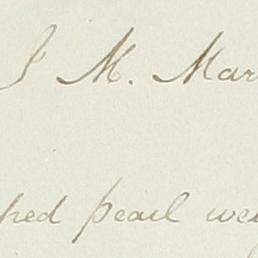 J M. Mar
ped pearl wei